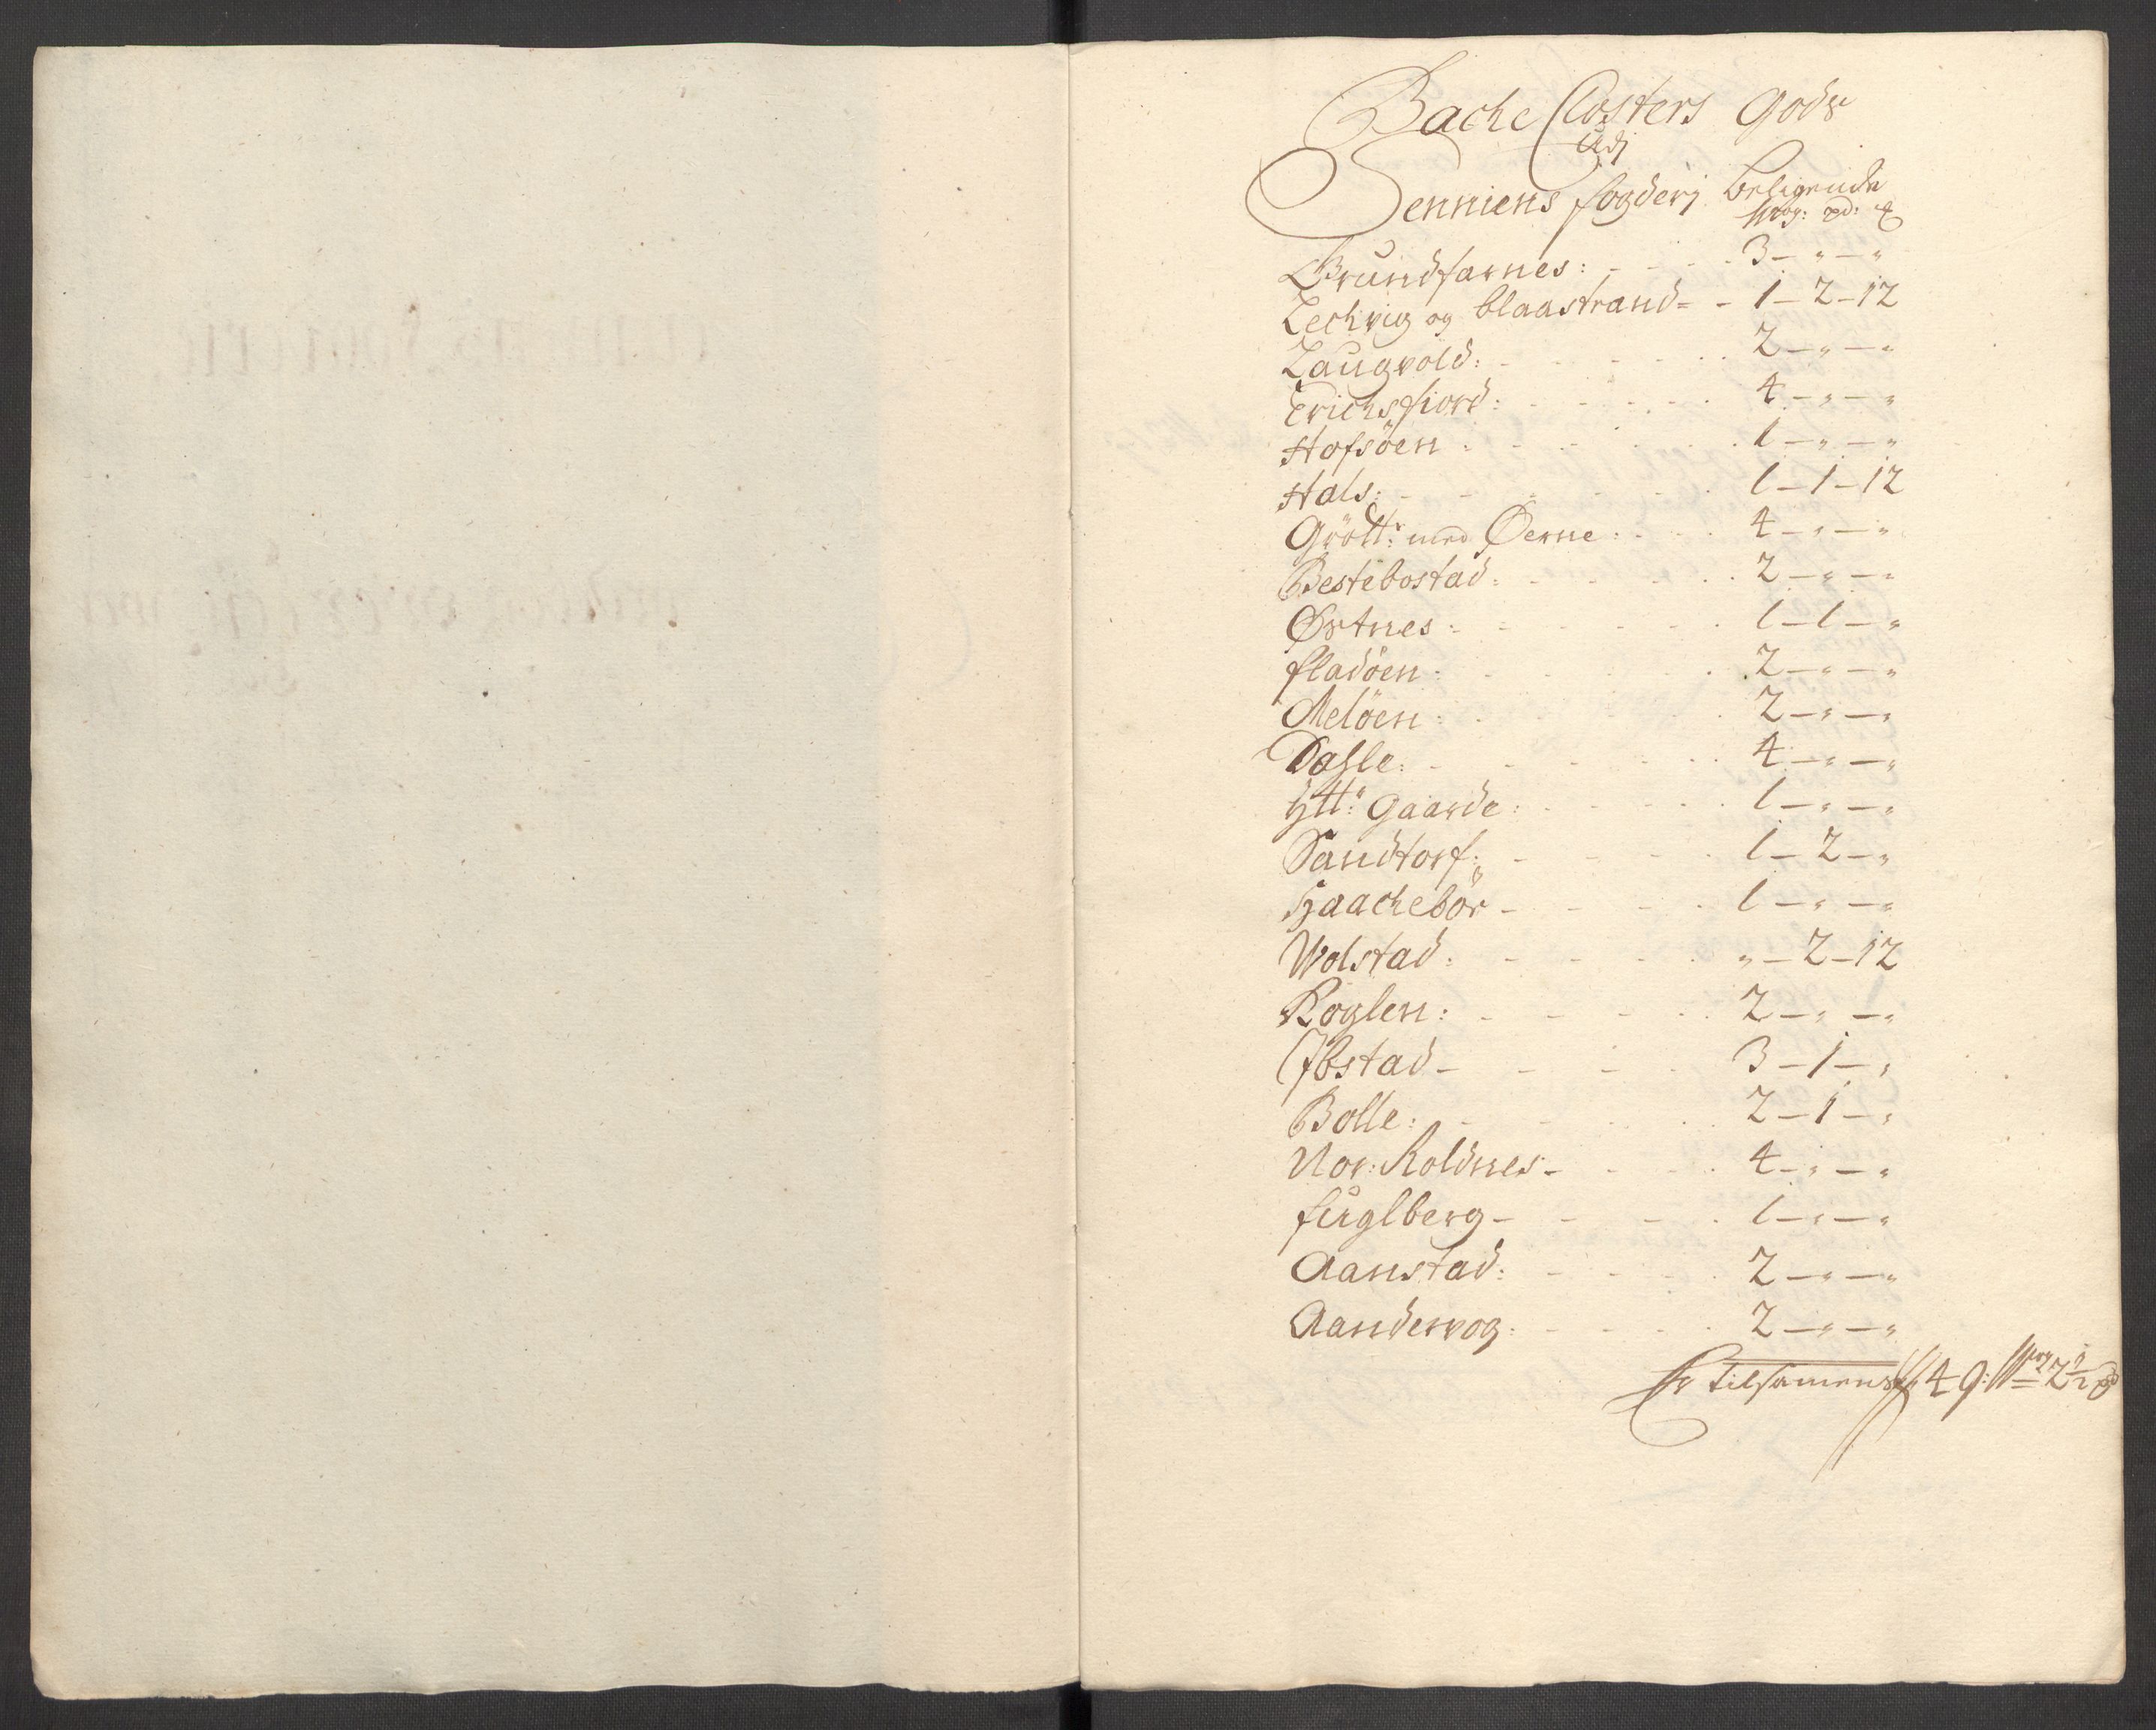 Bache Closters Gods
Udj
Senniens fogderj Beligende
Wog: pd: ℔
Grundfarnes: 3 - " - "
Lechvig og blaastrand - 1 - 2 - 12
Laugvold: 2 - " - "
Erichsfiord: 4 - " - "
Hofsöen: 1 - " - "
Hals: 1 - 1 - 12
Grött: med Øerne: 4 - " - "
Bestebostad: 2 - " - "
Østnes: 1 - 1 - "
fladöen: 2 - " - "
Melöen: 2 - " - "
Dahle: 4 - " - "
Ytt: Gaarde: 1 - " - "
Sandtorf: 1 - 2 - "
Haachebör - 1 - " - "
Wolstad: " - 2 - 12
Roglen: 2 - " - "
Ibstad - 3 - 1 - "
Bolle: 2 - 1 - "
Nor: Roldnes - 4 - " - "
fuglberg - 1 - " - "
Aanstad: 2 - " - "
Aandervog: 2 - " - "
Er tilsamens 49: Wog 2 1/2 pd